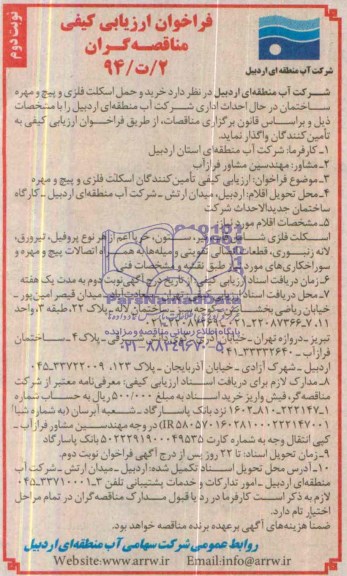 نوبت دوم
فراخوان ارزیابی کیفی
مناقصه‌گران
۹۴/ت/۲
شرکت آب منطقه‌ای اردبیل
شرکت آب منطقه‌ای اردبیل در نظر دارد خرید و حمل اسکلت فلزی و پیچ و مهره
ساختمان در حال احداث اداری شرکت آب منطقه‌ای اردبیل را با مشخصات
ذیل و براساس قانون برگزاری مناقصات، از طریق فراخوان ارزیابی کیفی به
تأمین کنندگان واگذار نماید.
۱ـ کارفرما: شرکت آب منطقه‌ای استان اردبیل
۲ـ مشاور: مهندسین مشاور فرازآب
۳ـ موضوع فراخوان: ارزیابی کیفی تأمین‌کنندگان اسکلت فلزی و پیچ و مهره
۴ـ محل تحویل اقلام: اردبیل، میدان ارتش ـ شرکت آب منطقه‌ای اردبیل ـ کارگاه
ساختمان جدیدالاحداث شرکت
۵ـ مشخصات اقلام مورد نیاز:
اسکلت فلزی ستون، خرپا اعم از هر نوع پروفیل، تیرورق،
لانه زنبوری، قطعات تقویتی و میله مهارها همراه اتصالات پیچ و مهره و
سوراخکاری‌های مورد نیاز طبق نقشه و مشخصات فنی
۶ـ زمان دریافت اسناد ارزیابی کیفی: از تاریخ درج آگهی نوبت دوم به مدت یک هفته
۷ـ محل دریافت اسناد میدان قیصر امین‌پور ـ
خیابان ریاضی بخشایش پلاک ۲۲، طبقه ۳، واحد
۱۱، ۷ـ۲۲۰۸۷۳۶۶ـ۰۲۱
تبریز ـ دروازه تهران ـ خیابان پلاک ۴ ـ ساختمان
فرازآب ـ ۰۴۱ـ۳۳۳۳۲۶۴۰
اردبیل ـ شهرک آزادی ـ خیابان آذربایجان ـ پلاک ۱۲۳، ۰۴۵ـ۳۳۷۲۲۰۰۹
۸ـ مدارک لازم برای دریافت اسناد ارزیابی کیفی: معرفی‌نامه معتبر از شرکت
مناقصه‌گر، فیش واریز خرید اسناد به مبلغ ۵۰۰/۰۰۰ ریال به حساب شماره
۱ـ۲۲۲۱۴۷ـ۸۱۰ـ۱۶۰۲ نزد بانک پاسارگاد ـ شعبه آبرسان (به شماره شبا
) در وجه مهندسین مشاور فرازآب ـ
کپی انتقال وجه به شماره کارت ۵۰۲۲۲۹۱۹۰۰۰۴۹۵۳۵ بانک پاسارگاد
۹ـ زمان تحویل اسناد: تا ۲۲ روز پس از درج آگهی فراخوان نوبت دوم.
۱۰ـ آدرس محل تحویل اسناد تکمیل شده: اردبیل ـ میدان ارتش ـ شرکت آب
منطقه‌ای اردبیل ـ امور تدارکات و خدمات پشتیبانی تلفن ۳ـ۳۳۷۱۰۰۰۱ـ۰۴۵
لازم به ذکر است کارفرما در رد یا قبول مدارک مناقصه‌گران در تمام مراحل
اختیار تام دارد.
ضمناً هزینه‌های آگهی برعهده برنده مناقصه خواهد بود.
روابط عمومی شرکت سهامی آب منطقه‌ای اردبیل
Website:www.arrw.ir Email:info@arrw.ir
ParsNamadData
پایگاه اطلاع رسانی مناقصه و مزایده
۰۲۱-۸۸۳۴۹۶۷۰-۵